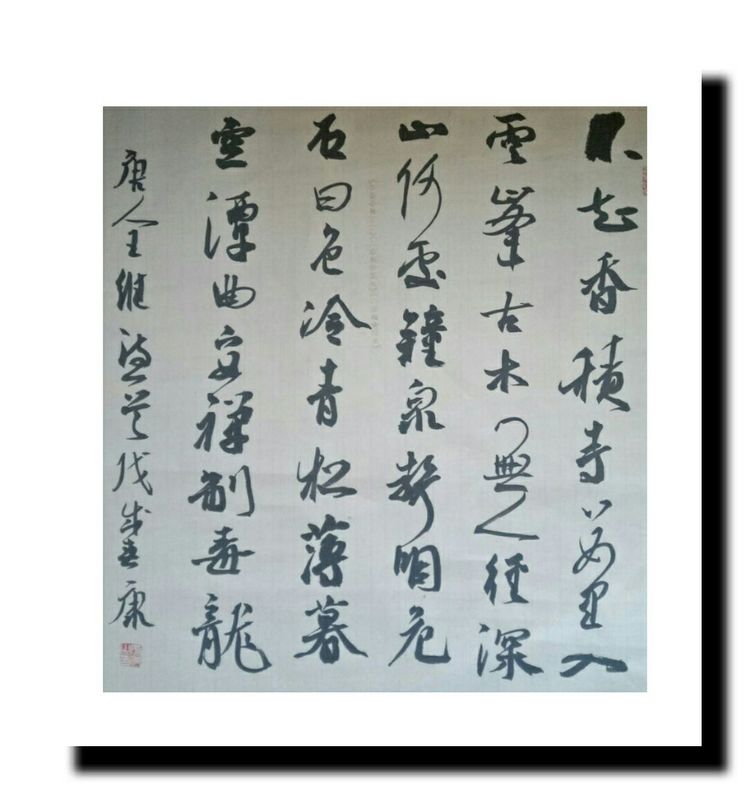 不知香積寺數里入
雲峯古木無人徑深
山何處鐘泉聲咽危
石日色冷青松薄暮
空潭曲安禪制毒龍
唐人王維詩戊戌春康